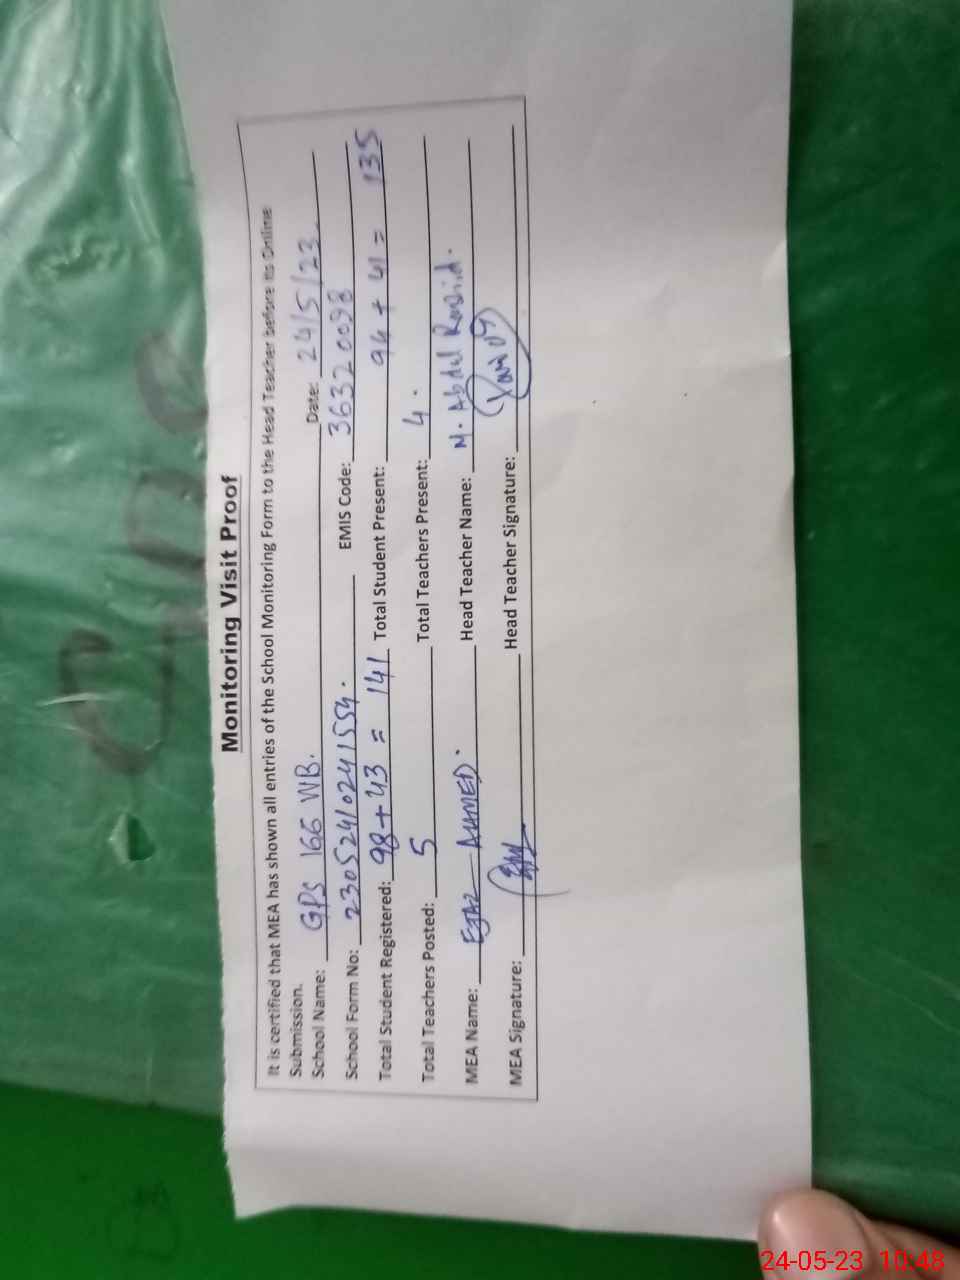 Monitoring Visit Proof
It is certified that MEA has shown all entries of the School Monitoring Form to the Head Teacher before its Online
Submission.
School Name: GPS 166 WB. Date: 24/5/23
School Form No: 23052410241554. EMIS Code: 36320098
Total Student Registered: 98+43 = 141 Total Student Present: 94 + 41 = 135
Total Teachers Posted: 5 Total Teachers Present: 4.
MEA Name: EJAZ AHMED. Head Teacher Name: M. Abdul Rashid.
MEA Signature: Head Teacher Signature:
24-05-23 10:48